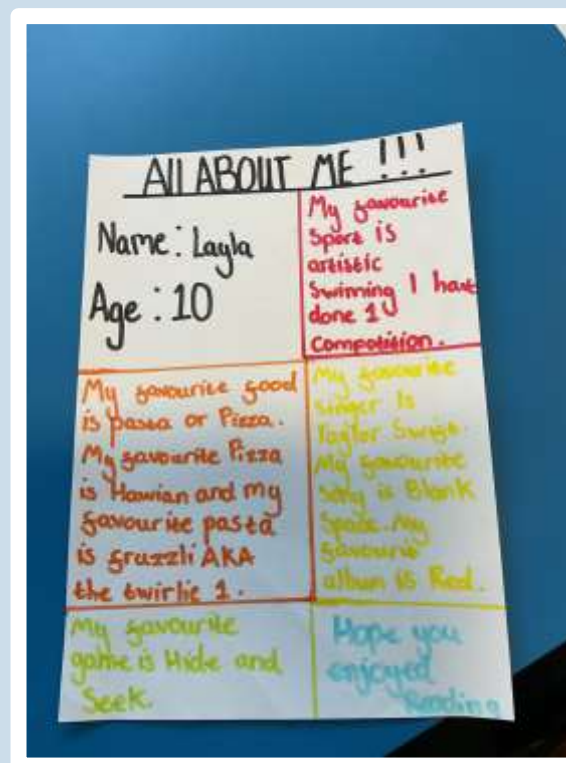 All ABOUT ME !!!
Name: Layla
Age: 10
My favourite
Sport is
artistic
Swiming I have
done 1
Compotition.
My favourite food
is pasta or Pizza.
My favourite Pizza
is Hawian and my
favourite pasta
is fruzzli AKA
the twirlie 1.
My favourite
singer Is
Taylor Swift.
My favourite
song is Blank
Space. My
favourite
album is Red.
My favourite
game is Hide and
Seek.
Hope you
enjoyed
Reading